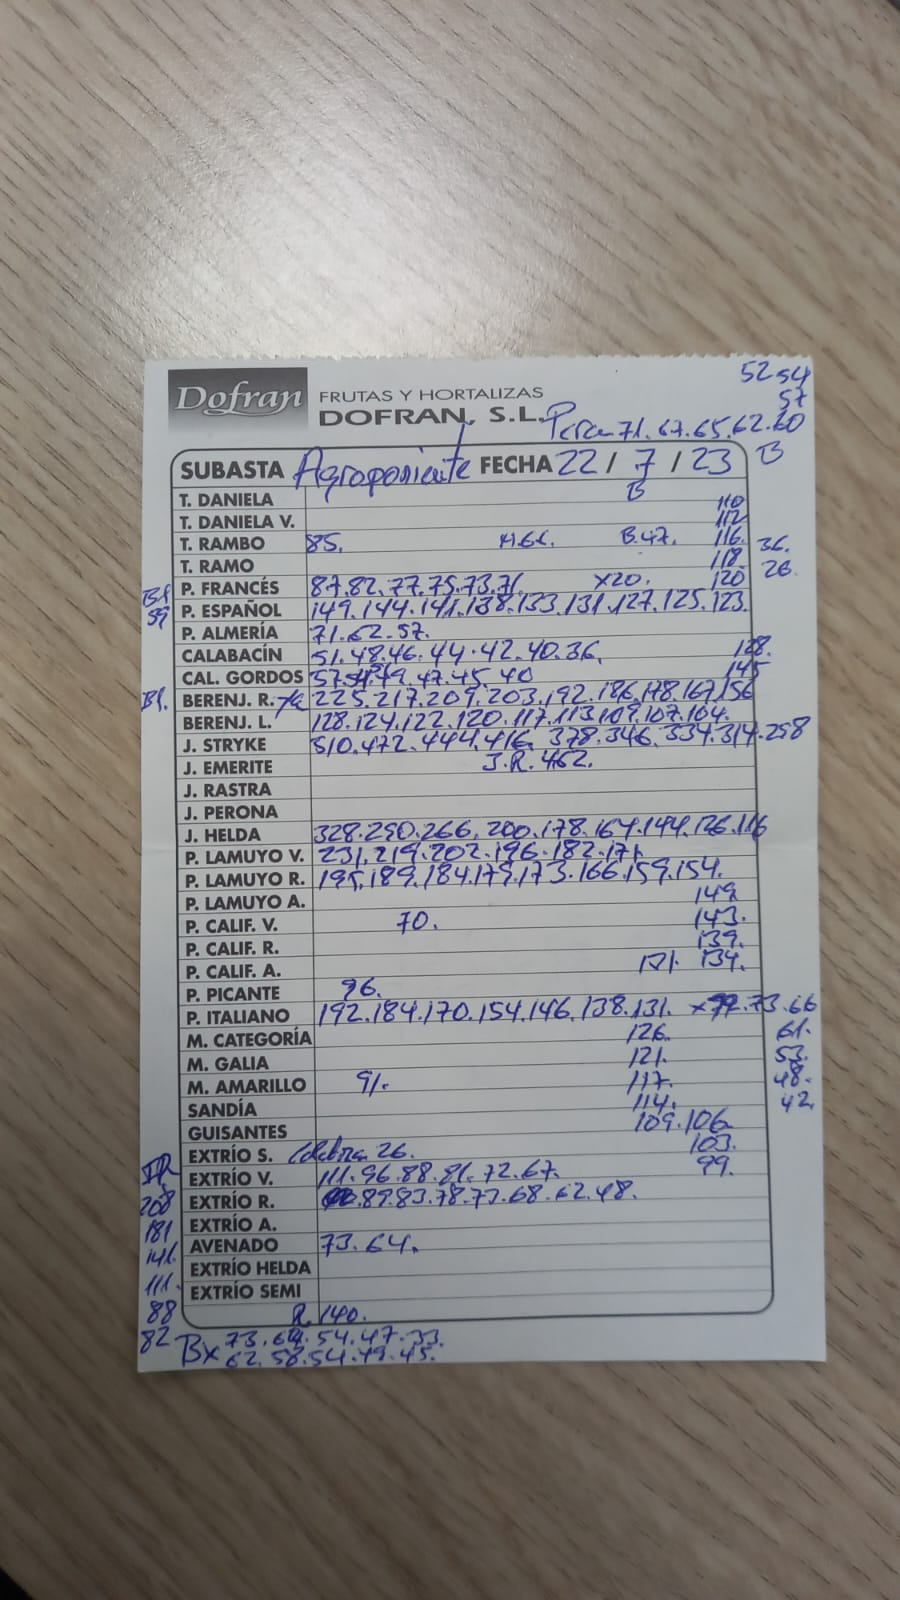 52 54
57
Dofran FRUTAS Y HORTALIZAS
DOFRAN, S.L. Pera 71. 67. 65. 62. 60
SUBASTA Agroponiente FECHA 22 / 7 / 23 B
T. DANIELA B 110
T. DANIELA V. 112
T. RAMBO 85. B.47. 116. 36.
T. RAMO 118 26.
P. FRANCÉS 87. 82. 77. 75. 73. 71. x20. 120
59 P. ESPAÑOL 149. 144. 141. 138. 133. 131. 127. 125. 123.
P. ALMERÍA 71. 62. 57.
CALABACÍN 51. 48. 46. 44. 42. 40. 36. 128.
CAL. GORDOS 57. 49. 47. 45. 40 145
BERENJ. R. 225. 217. 209. 203. 192. 186. 178. 167. 156
BERENJ. L. 128. 124. 122. 120. 117. 113. 109. 107. 104.
J. STRYKE 510. 472. 444. 416. 378. 346. 334. 314. 258
J. EMERITE J.R. 462.
J. RASTRA
J. PERONA
J. HELDA 328. 290. 266. 200. 178. 164. 144. 126. 116
P. LAMUYO V. 231. 219. 202. 196. 182. 171.
P. LAMUYO R. 195. 189. 184. 179. 173. 166. 159. 154.
P. LAMUYO A. 149
P. CALIF. V. 70. 143.
P. CALIF. R. 139.
P. CALIF. A. 131. 134.
P. PICANTE 96.
P. ITALIANO 192. 184. 170. 154. 146. 138. 131. 73. 66
M. CATEGORÍA 126. 61.
M. GALIA 121. 53.
M. AMARILLO 91. 117. 48.
SANDÍA 114. 42.
GUISANTES 109. 106
EXTRÍO S. 26. 103.
EXTRÍO V. 111. 96. 88. 81. 72. 67. 99.
208 EXTRÍO R. 89. 83. 78. 73. 68. 62. 48.
181 EXTRÍO A.
141. AVENADO 73. 64.
111. EXTRÍO HELDA
EXTRÍO SEMI
88 R. 140.
82 Bx 73. 64. 54. 47. 33.
62. 58. 54. 49. 45.